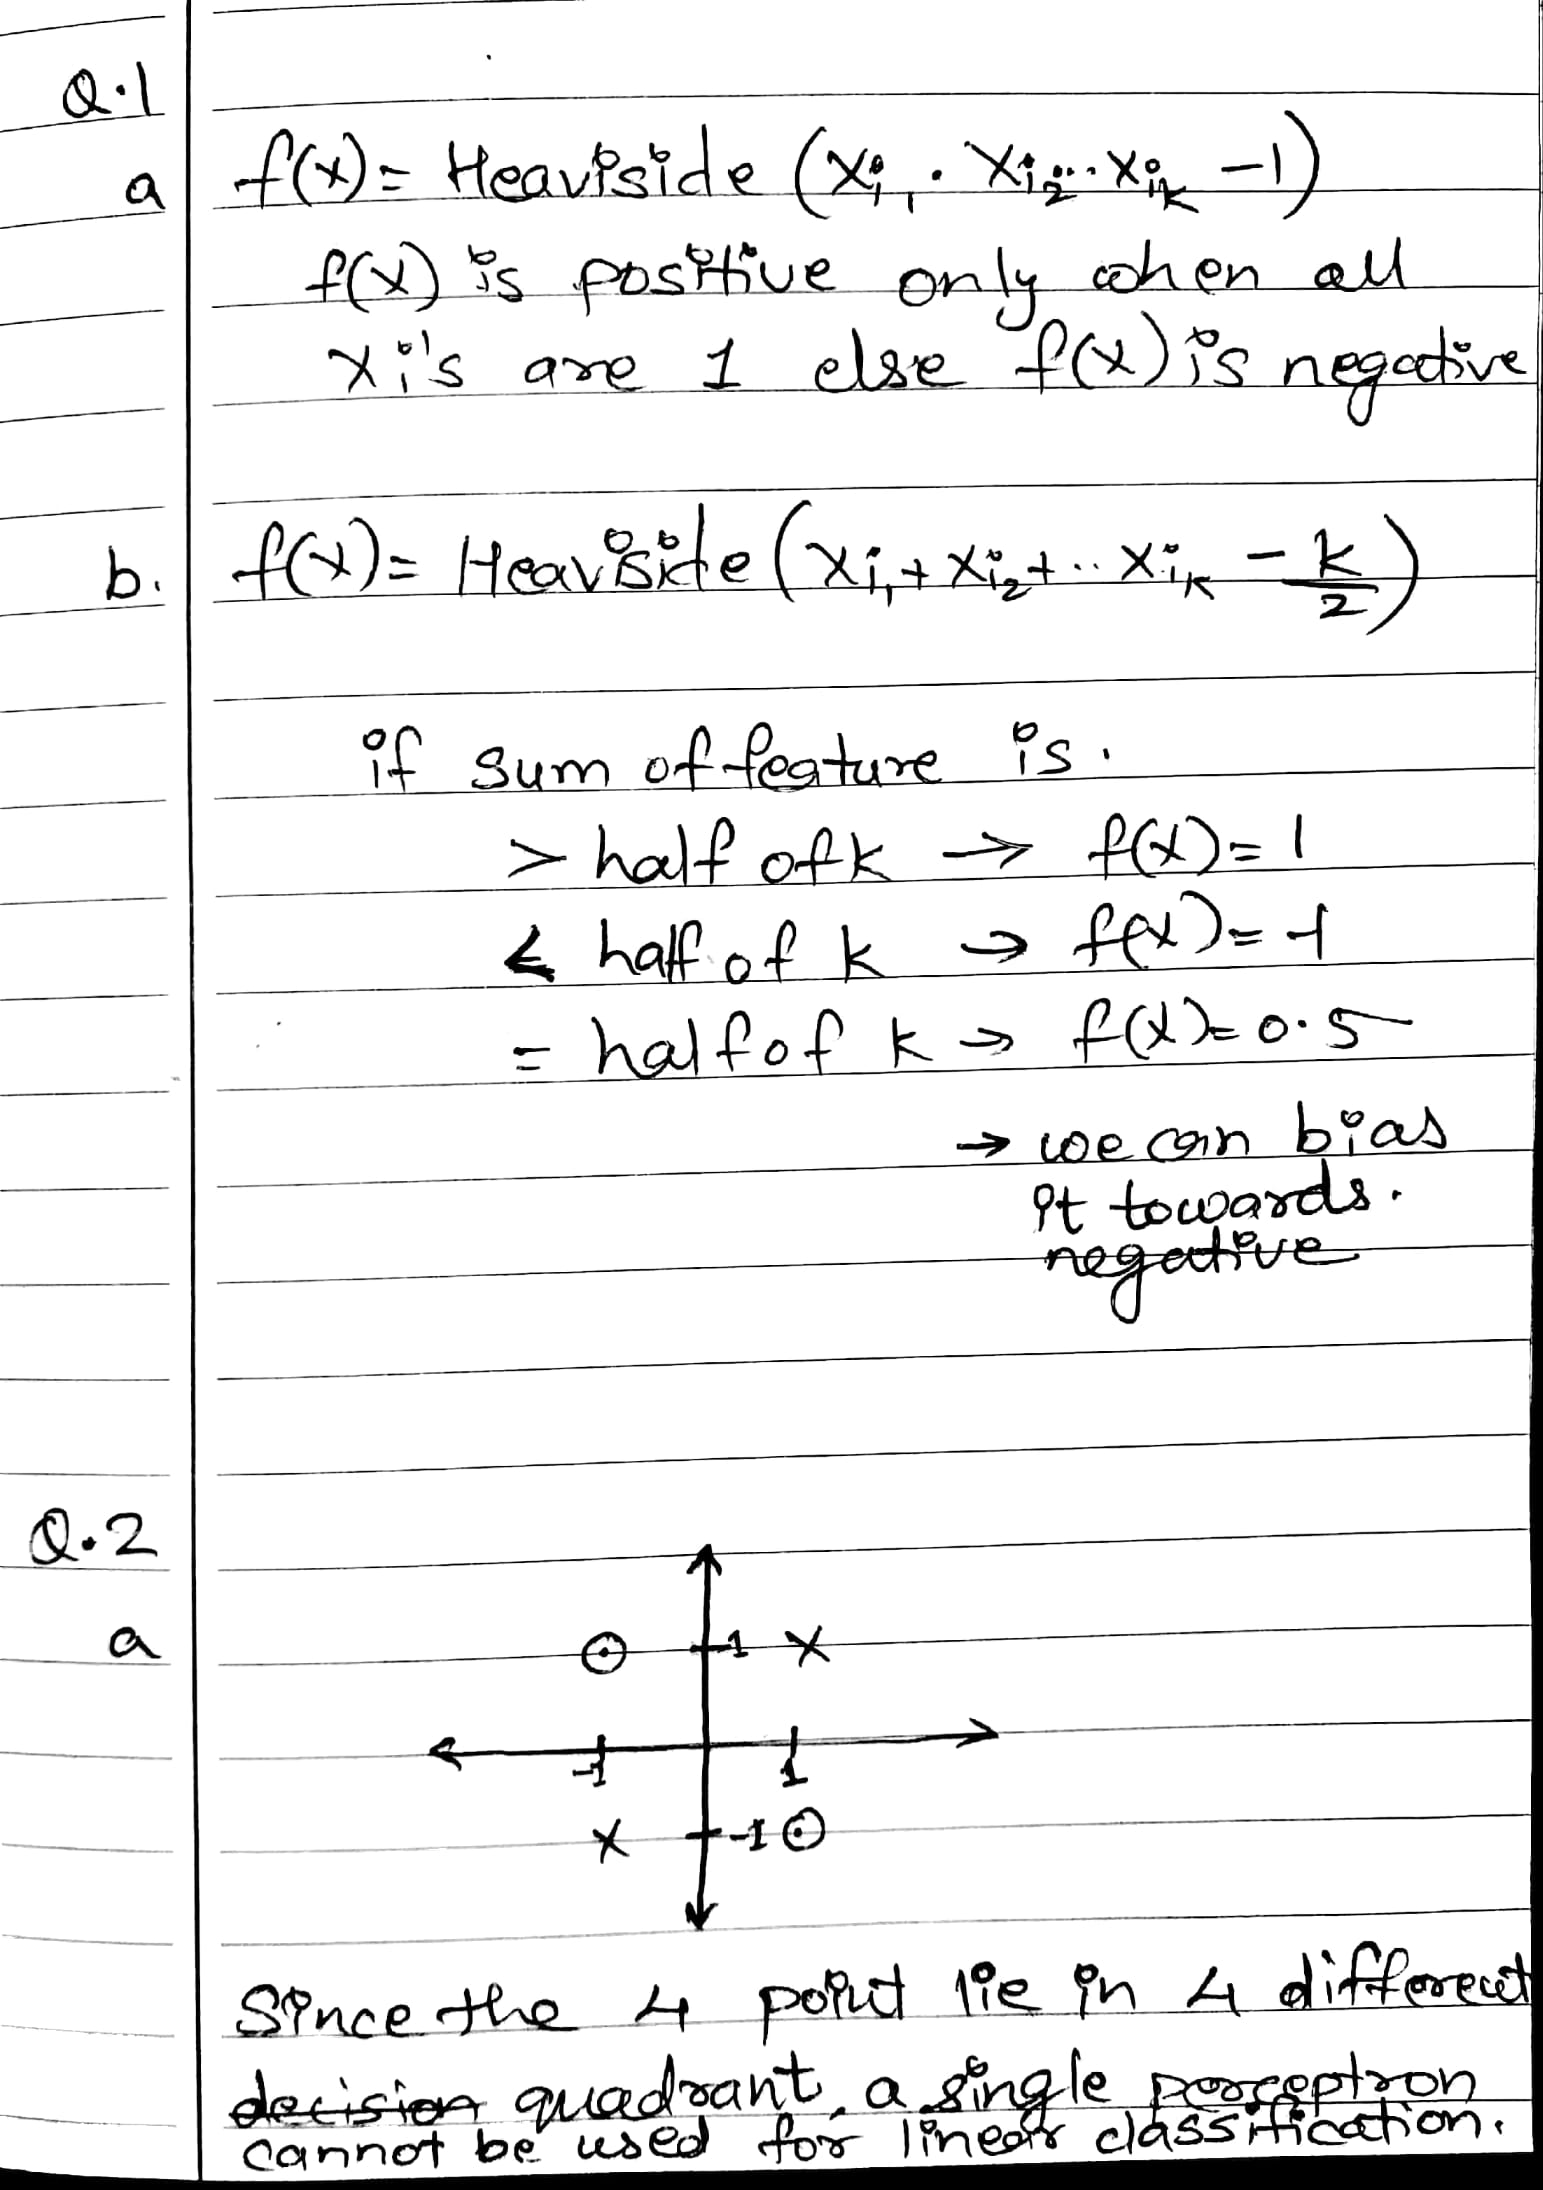 Q.1
a f(x) = Heaviside (x_{i_1} · x_{i_2} ... x_{i_k} - 1)
f(x) is positive only when all
x_i's are 1 else f(x) is negative
b. f(x) = Heaviside (x_{i_1} + x_{i_2} + .. x_{i_k} - k/2)
if sum of feature is.
> half of k → f(x) = 1
< half of k → f(x) = -1
= half of k → f(x) = 0.5
→ we can bias
it towards.
negative
Q.2
a
1 X
-1 1
X -1
Since the 4 point lie in 4 different
decision quadrant, a single perceptron
cannot be used for linear classification.